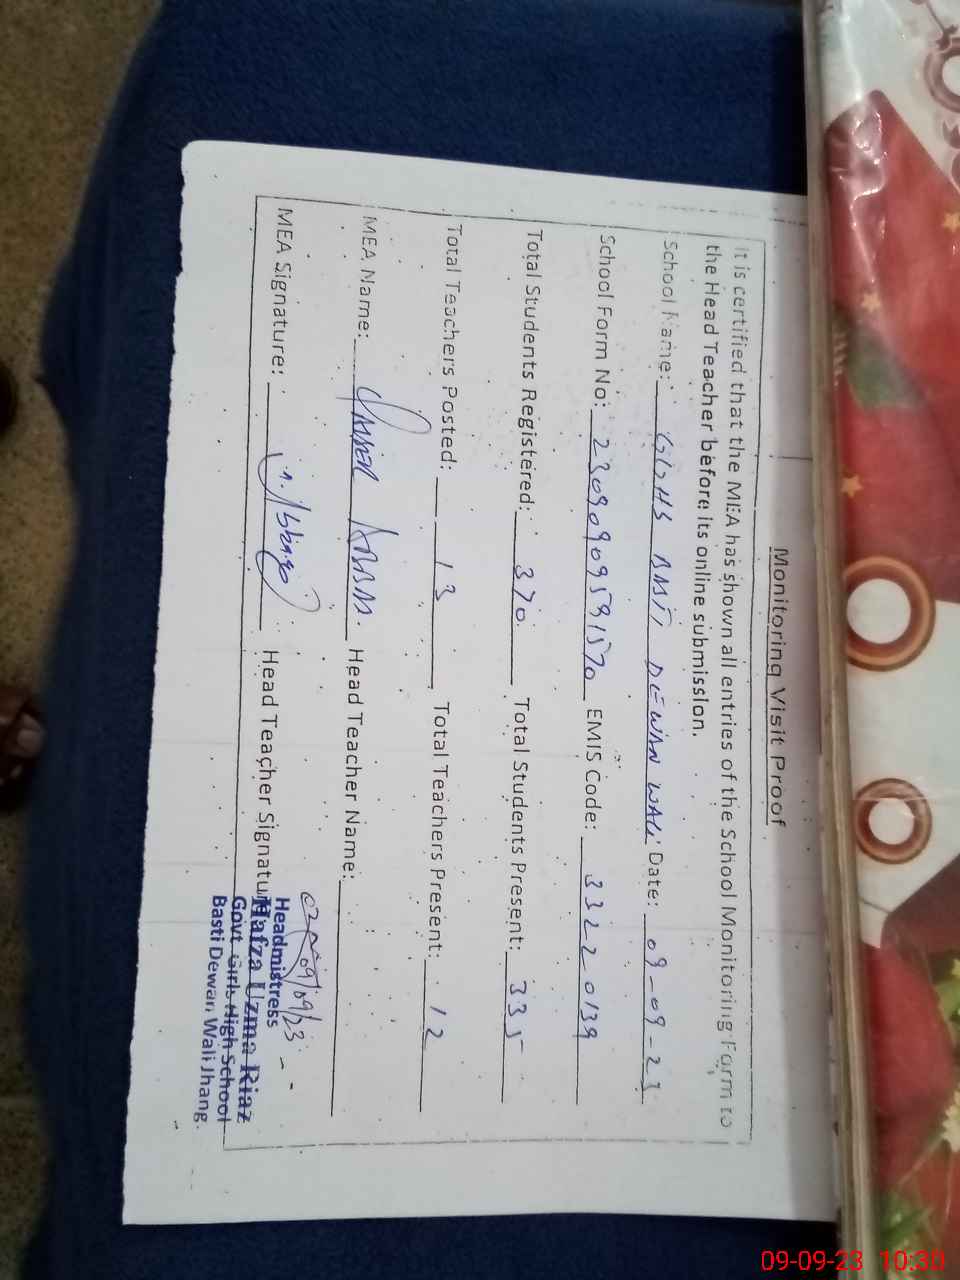 Monitoring Visit Proof
It is certified that the MEA has shown all entries of the School Monitoring Form to
the Head Teacher before its online submission.
School Name: GGHS BASTI DEWAN WALI Date: 09-09-23
School Form No: 23090909591570 EMIS Code: 33220139
Total Students Registered: 370 Total Students Present: 335
Total Teachers Posted: 13 Total Teachers Present: 12
MEA Name: Head Teacher Name:
MEA Signature: Head Teacher Signature
09/09/23
Headmistress
Hafza Uzma Riaz
Govt Girls High School
Basti Dewan Wali Jhang.
09-09-23 10:30